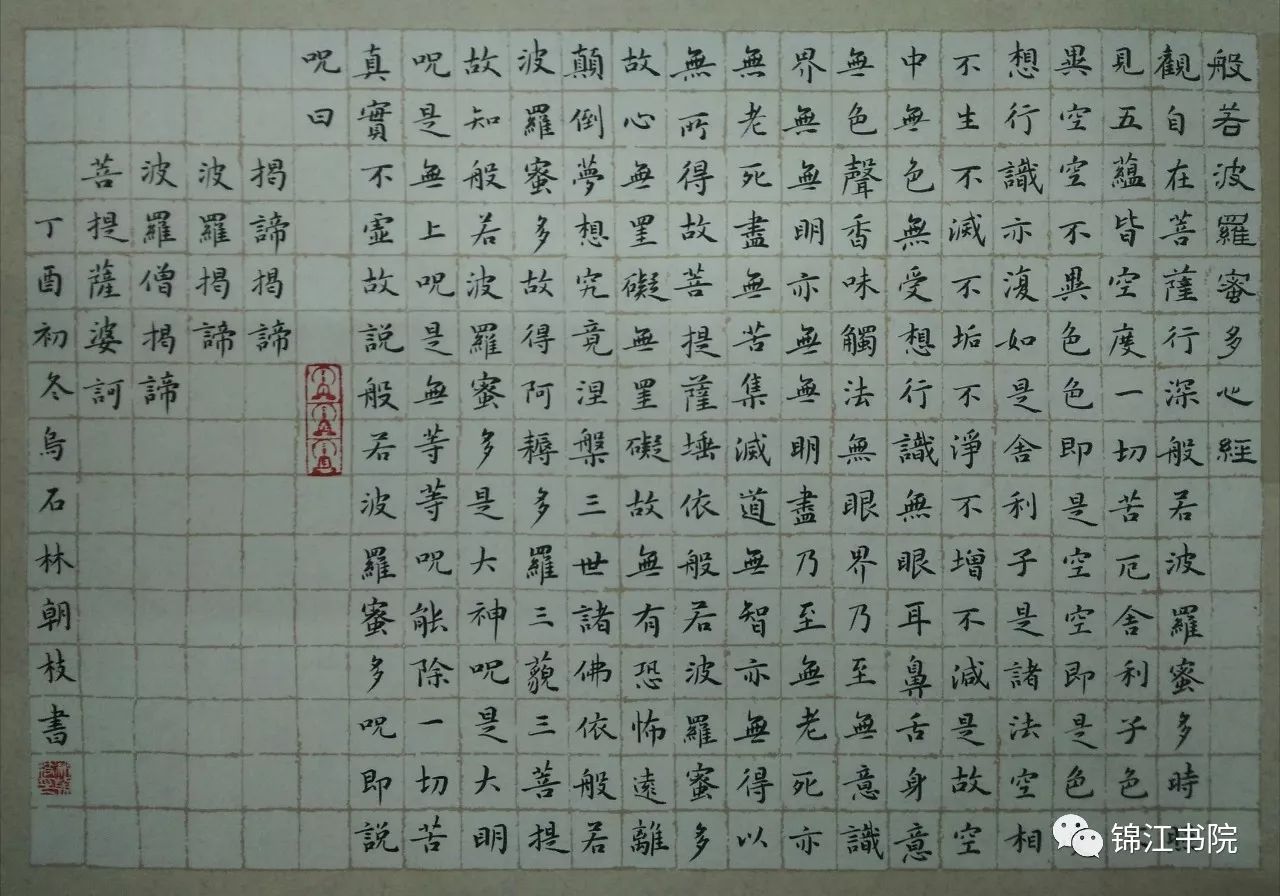 般若波羅蜜多心經
觀自在菩薩行深般若波羅蜜多時
見五蘊皆空度一切苦厄舍利子色
異空空不異色色即是空空即是色
想行識亦復如是舍利子是諸法空相
不生不滅不垢不淨不增不減是故空
中無色無受想行識無眼耳鼻舌身意
無色聲香味觸法無眼界乃至無意識
界無無明亦無無明盡乃至無老死亦
無老死盡無苦集滅道無智亦無得以
無所得故菩提薩埵依般若波羅蜜多
故心無罣礙無罣礙故無有恐怖遠離
顛倒夢想究竟涅槃三世諸佛依般若
波羅蜜多故得阿耨多羅三藐三菩提
故知般若波羅蜜多是大神呪是大明
呪是無上呪是無等等呪能除一切苦
真實不虛故說般若波羅蜜多呪即說
呪曰
揭諦揭諦
波羅揭諦
波羅僧揭諦
菩提薩婆訶
丁酉初冬烏石林朝枝書
锦江书院